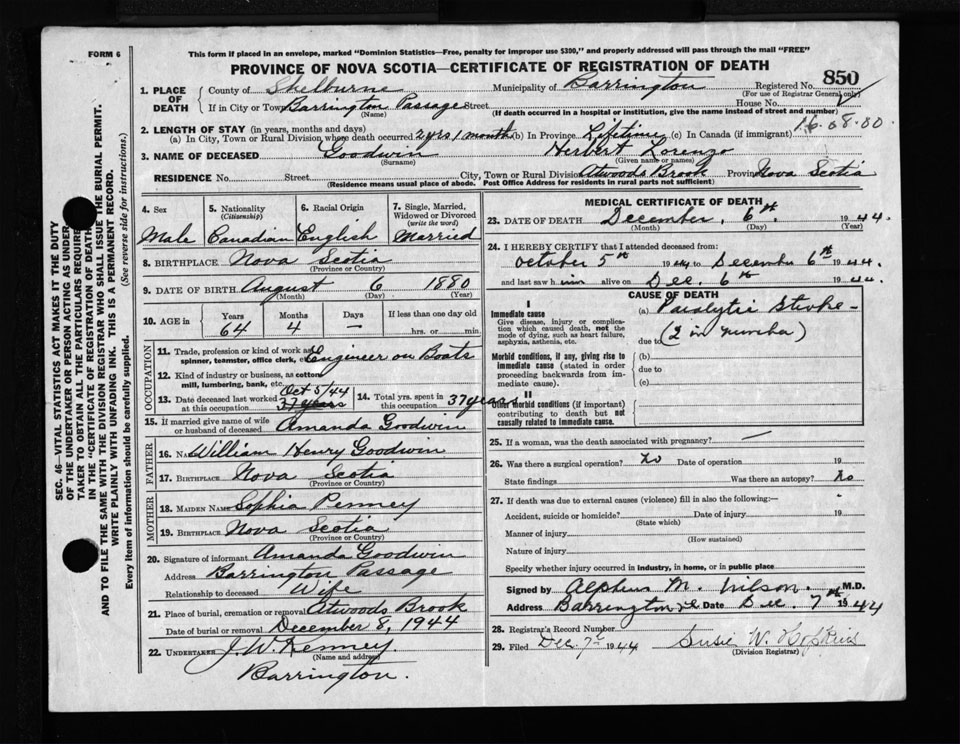 FORM 6
This form if placed in an envelope, marked "Dominion Statistics—Free, penalty for improper use $300," and properly addressed will pass through the mail "FREE"
PROVINCE OF NOVA SCOTIA—CERTIFICATE OF REGISTRATION OF DEATH
850
1. PLACE OF DEATH County of Shelburne Municipality of Barrington Registered No.
(For use of Registrar General only)
If in City or Town Barrington Passage Street House No.
(Name) (If death occurred in a hospital or institution, give the name instead of street and number)
16.08.00
2. LENGTH OF STAY (in years, months and days)
(a) In City, Town or Rural Division where death occurred 2 yrs 1 month (b) In Province Lifetime (c) In Canada (if immigrant)
3. NAME OF DECEASED Goodwin Herbert Lorenzo
(Surname) (Given name or names)
RESIDENCE No. Street City, Town or Rural Division Atwoods Brook Province Nova Scotia
(Residence means usual place of abode. Post Office Address for residents in rural parts not sufficient)
SEC. 46—VITAL STATISTICS ACT MAKES IT THE DUTY
OF THE UNDERTAKER OR PERSON ACTING AS UNDER-
TAKER TO OBTAIN ALL THE PARTICULARS REQUIRED
IN THE "CERTIFICATE OF REGISTRATION OF DEATH"
AND TO FILE THE SAME WITH THE DIVISION REGISTRAR WHO SHALL ISSUE THE BURIAL PERMIT.
WRITE PLAINLY WITH UNFADING INK. THIS IS A PERMANENT RECORD.
Every item of information should be carefully supplied. (See reverse side for instructions.)
4. Sex
Male
5. Nationality
(Citizenship)
Canadian
6. Racial Origin
English
7. Single, Married, Widowed or Divorced
(write the word)
Married
8. BIRTHPLACE Nova Scotia
(Province or Country)
9. DATE OF BIRTH August 6 1880
(Month) (Day) (Year)
10. AGE in Years Months Days If less than one day old
64 4 — hrs. or min.
OCCUPATION
11. Trade, profession or kind of work as
spinner, teamster, office clerk, etc. Engineer on Boats
12. Kind of industry or business, as cotton
mill, lumbering, bank, etc.
13. Date deceased last worked at this occupation Oct 5/44
37 years
14. Total yrs. spent in this occupation 37 years
15. If married give name of wife
or husband of deceased Amanda Goodwin
FATHER
16. Name William Henry Goodwin
17. Birthplace Nova Scotia
(Province or Country)
MOTHER
18. MAIDEN NAME Sophia Penney
19. BIRTHPLACE Nova Scotia
(Province or Country)
20. Signature of informant Amanda Goodwin
Address Barrington Passage
Relationship to deceased Wife
21. Place of burial, cremation or removal Atwoods Brook
Date of burial or removal December 8, 1944
22. UNDERTAKER J. W. Kenney
(Name and address)
Barrington.
MEDICAL CERTIFICATE OF DEATH
23. DATE OF DEATH December, 6th 1944.
(Month) (Day) (Year)
24. I HEREBY CERTIFY that I attended deceased from:
October 5th 1944 to December 6th 1944.
and last saw him alive on Dec. 6th 1944
CAUSE OF DEATH
I
Immediate cause
Give disease, injury or complica-
tion which caused death, not the
mode of dying, such as heart failure,
asphyxia, asthenia, etc.
(a) Paralytic Stroke—
(2 in number)
due to
Morbid conditions, if any, giving rise to
immediate cause (stated in order
proceeding backwards from im-
mediate cause).
(b)
due to
(c)
II
Other morbid conditions (if important)
contributing to death but not
causally related to immediate cause.
25. If a woman, was the death associated with pregnancy? —
26. Was there a surgical operation? No Date of operation 19
State findings Was there an autopsy? No
27. If death was due to external causes (violence) fill in also the following:—
Accident, suicide or homicide? Date of injury 19
(State which)
Manner of injury
(How sustained)
Nature of injury
Specify whether injury occurred in industry, in home, or in public place
Signed by Alpheus M. Wilson. M.D.
Address Barrington Date Dec. 7th 1944
28. Registrar's Record Number
29. Filed Dec. 7th 1944 Susie W. Hopkins
(Division Registrar)